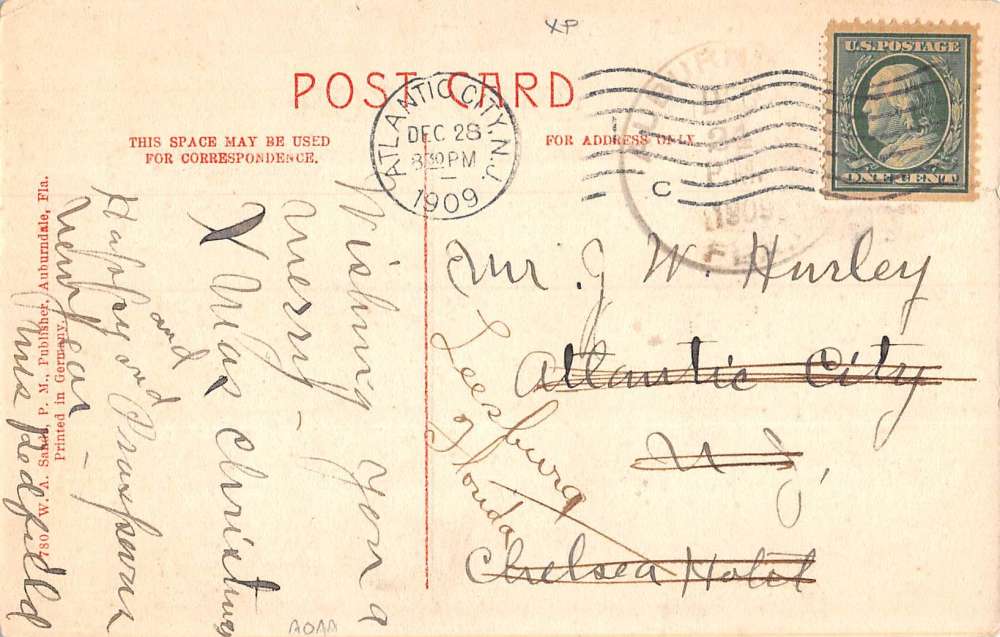 XP
POST CARD
THIS SPACE MAY BE USED
FOR CORRESPONDENCE.
FOR ADDRESS ONLY.
U.S. POSTAGE
ONE CENT
ATLANTIC CITY, N.J.
DEC 28
PM
1909
AUBURN
24
1909
FLA
C
Wishing you a
merry -
X Mas Christmas
and
Happy and Prosperous
New Year -
Miss Redfield
Mr. J W. Hurley
Atlantic City
N J,
Chelsea Hotel
Leesburg
Florida
780 W. A. Sands, P. M., Publisher, Auburndale, Fla.
Printed in Germany.
AOAA